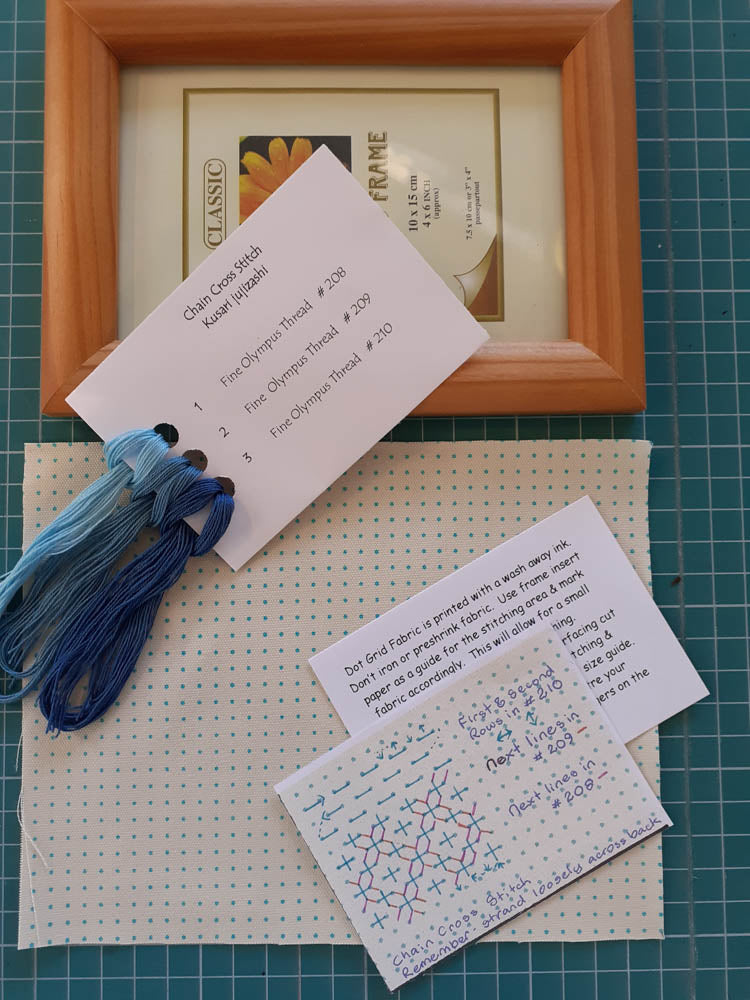 CLASSIC
FRAME
10 x 15 cm
4 x 6 INCH
(approx)
7.5 x 10 cm or 3" x 4"
passepartout
Chain Cross Stitch
Kusari Jujizashi
1 Fine Olympus Thread # 208
2 Fine Olympus Thread # 209
3 Fine Olympus Thread # 210
Dot Grid Fabric is printed with a wash away ink.
Don't iron or preshrink fabric. Use frame insert
paper as a guide for the stitching area & mark
fabric accordingly. This will allow for a small
hing.
rfacing cut
tching &
size guide.
re your
gers on the
First & second
Rows in # 210
next lines in
# 209
next lines in
# 208
Chain Cross Stitch
Remember: strand loosely across back